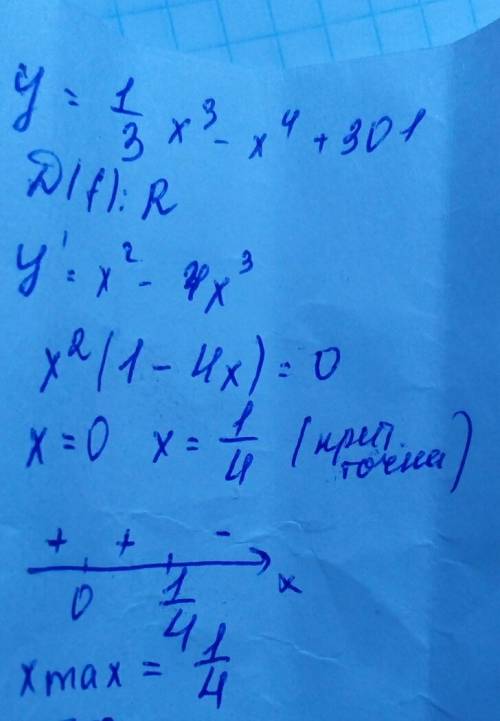 y = 1/3 x³ - x⁴ + 301
D(f): R
y' = x² - 4x³
x²(1 - 4x) = 0
x = 0 x = 1/4 (крит точка)
+ + -
0 1/4 x
xmax = 1/4